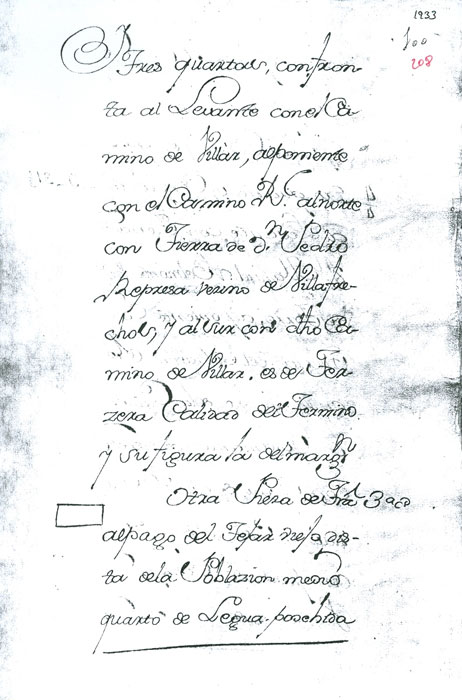 1933
100
208
Tres quartas, confron-
ta al Levante con el Ca-
mino de Villàr, al poniente
con el Camino R.l al norte
con Tierra de d.n Pedro
Represa vezino de Villafre-
chos, y al sur con dho Ca-
mino de Villar. es de Ter-
zera Calidad del Termino
y su figura la del marg.n
Otra Pieza de Tra 3ª cd
al pago del Tejàr dis-
ta dela Poblazion medio
quarto de Legua. poschida